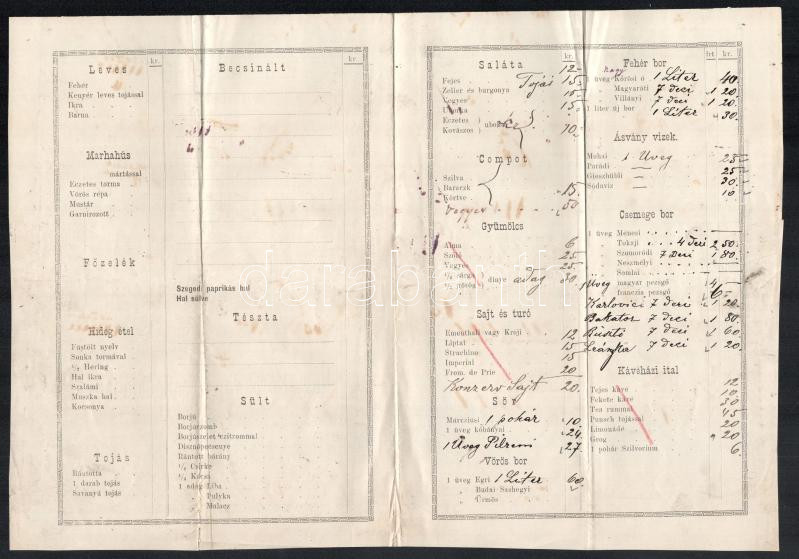 kr.
Leves
Fehér
Kenyér leves tojással
Ikra
Barna
Marhahús
mártással
Eczetes torma
Vörös répa
Mustár
Garnirozott
Főzelék
Hideg étel
Füstölt nyelv
Sonka tormával
1/2 Hering
Hal ikra
Szalámi
Muszka hal
Kocsonya
Tojás
Rántotta
1 darab tojás
Savanyú tojás
kr.
Becsinált
Szegedi paprikás hal
Hal sülve
Tészta
Sült
Borjú
Borjúczomb
Borjúszelet czitrommal
Disznópecsenye
Rántott bárány
1/4 Csirke
1/4 Kácsa
1 adag Liba
" Pulyka
" Malacz
kr.
Saláta 12
Fejes 15
Zeller és burgonya Tojás 15
Vegyes 15
Ugorka
Eczetes
Kovászos } uborka 10
Compot
Szilva
Baraczk 15
Körtve
Vegyes 50
Gyümölcs
Alma 6
Szőlő 25
Vegyes 25
1/2 sárga dinye adag 30
1/2 görög
Sajt és turó
Ementhali vagy Groji 12
Liptai 15
Strachino 15
Imperial
From. de Prie 20
Konzerv Sajt 20.
Sör
Marcziusi 1 pohár 10
1 üveg kőbányai 24
1 Üveg Pilzeni 27
Vörös bor
1 üveg Egri 1 Liter 60
" Budai Sashegyi
" Ürmös
frt kr.
Fehér bor
nagy
1 üveg Kőrösi ó 1 Liter 40
" Magyaráti 7 deci 1 20
" Villányi 7 deci 1 20
1 liter új bor 1 Liter 30
Ásvány vizek.
Mohai 1 Üveg 25
Parádi 25
Gieszhübli 30
Sódavíz 10
Csemege bor
1 üveg Menesi
" Tokaji 4 deci 2 50
" Szomoródi 7 deci 1 80
" Neszmélyi
" Somlai
1 Üveg magyar pezsgő 4
franczia pezsgő 6
Karlovici 7 deci 1 20
Bakator 7 deci 1 80
Rusztó 7 deci 1 60
Leányka 7 deci 1 20
Kávéházi ital
Tejes kávé 12
Fekete kávé 10
Tea rummal 30
Puncs tojással 45
Limonáde 20
Grog 20
1 pohár Szilvorium 6
darabanth